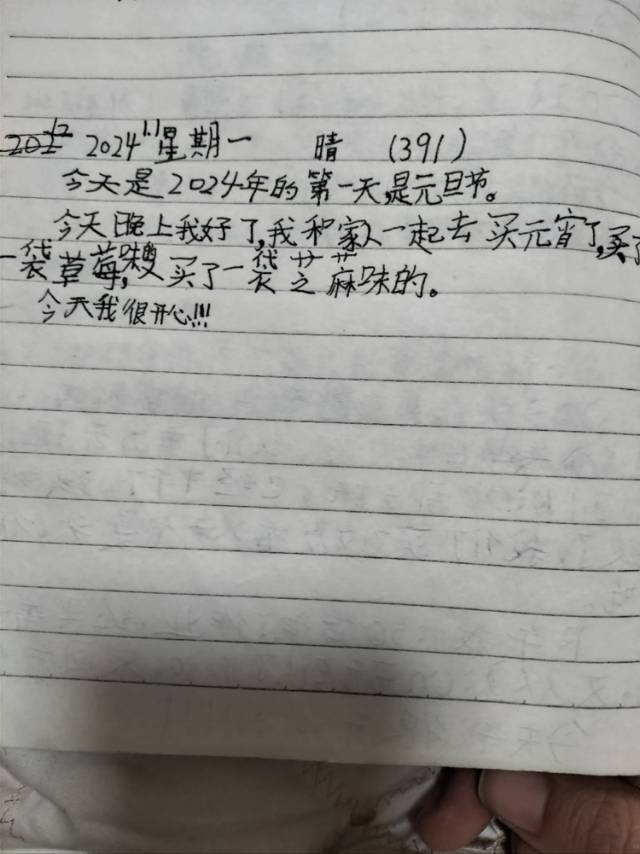 2024 1.1 星期一 晴 (391)
今天是2024年的第一天,是元旦节。
今天晚上我好了,我和家人一起去买元宵了,买了
一袋草莓味,买了一袋芝芝麻味的。
今天我很开心!!!